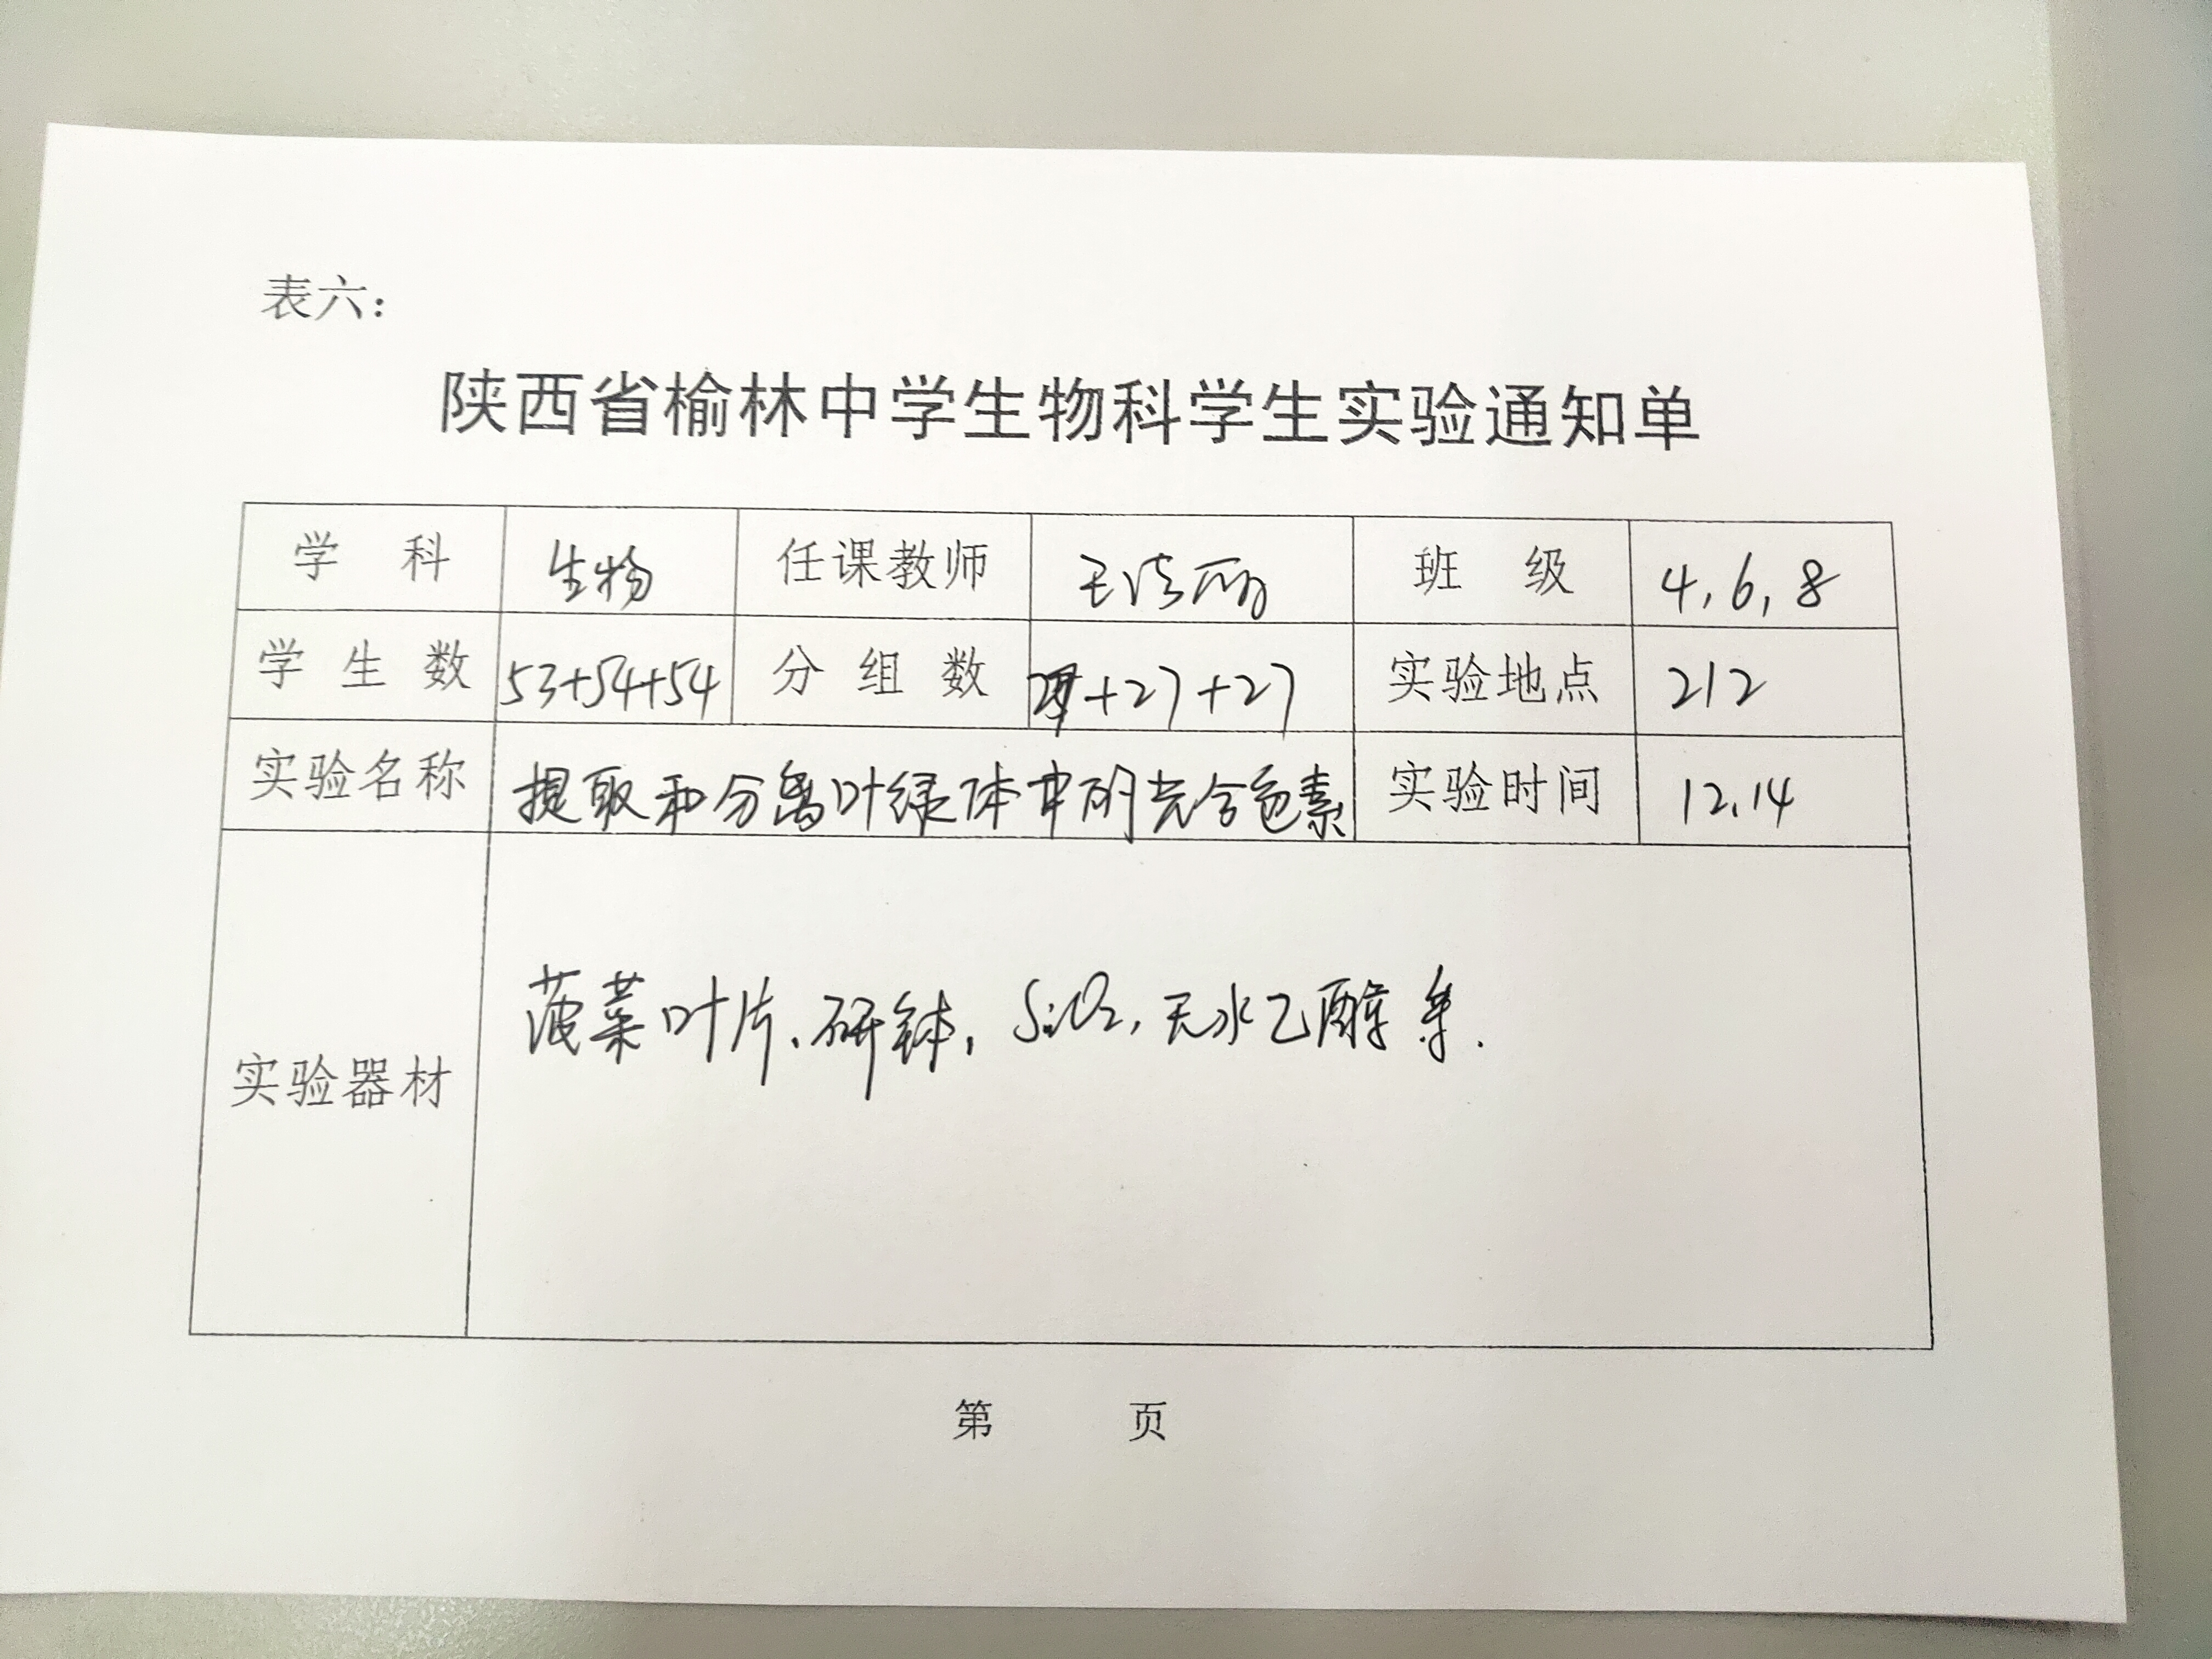 表六：
陕西省榆林中学生物科学生实验通知单
学 科 生物 任课教师 王 丽 班 级 4，6，8
学 生 数 53+54+54 分 组 数 +27+27 实验地点 212
实验名称 提取和分离叶绿体中的光合色素 实验时间 12.14
实验器材 菠菜叶片、研钵，SiO2，无水乙醇等.
第 页